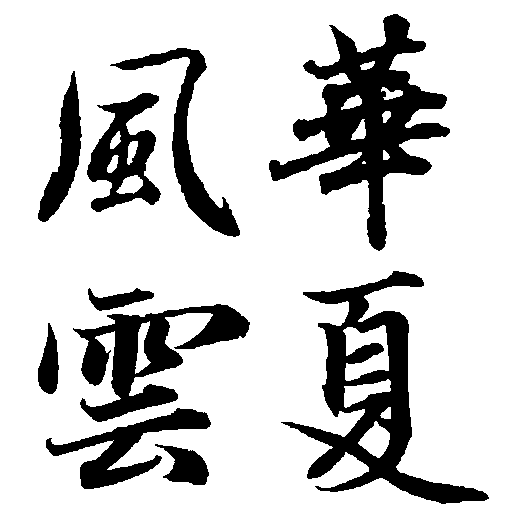 華夏
風雲